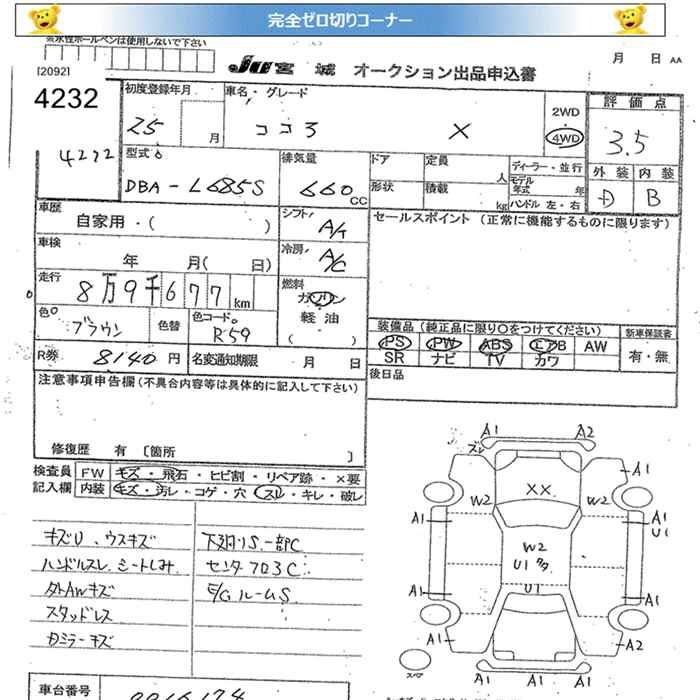 完全ゼロ切りコーナー
※水性ボールペンは使用しないで下さい
JU宮城 オークション出品申込書
月 日 AA
[2092]
4232
4272
初度登録年月
25 月
車名・グレード
ココア X
2WD
・
4WD
評価点
3.5
外装 内装
D B
型式
DBA-L685S
排気量
660 CC
ドア 定員 人
形状 積載 kg
ディーラー・並行
モデル年式 年
ハンドル 左・右
車歴
自家用・( )
シフト
A/T
セールスポイント (正常に機能するものに限ります)
車検
年 月( 日)
冷房
A/C
走行
8万9千677 km
燃料
ガソリン
軽油
( )
色
ブラウン
色替
色コード
R59
装備品(純正品に限り○をつけてください)
新車保証書
PS PW ABS エアB AW
SR ナビ TV カワ
有・無
R券 8140 円
名変通知期限 月 日
後日品
注意事項申告欄(不具合内容等は具体的に記入して下さい)
修復歴 有 〔箇所 〕
検査員記入欄
FW キズ・飛石・ヒビ割・リペア跡・×要
内装 キズ・汚レ・コゲ・穴 スレ・キレ・破レ
キズU、ウスキズ
ハンドルスレ シートしみ
外AWキズ
スタッドレス
カミラーキズ
下廻りS一部C
センタフロ3C
E/GルームS
A1 A2
ズレ
A1
XX
W2 W2
A1 A1
U1
W2
U1
U1
A1 A1
A1 A2
スペア
A1 A1 A1
車台番号